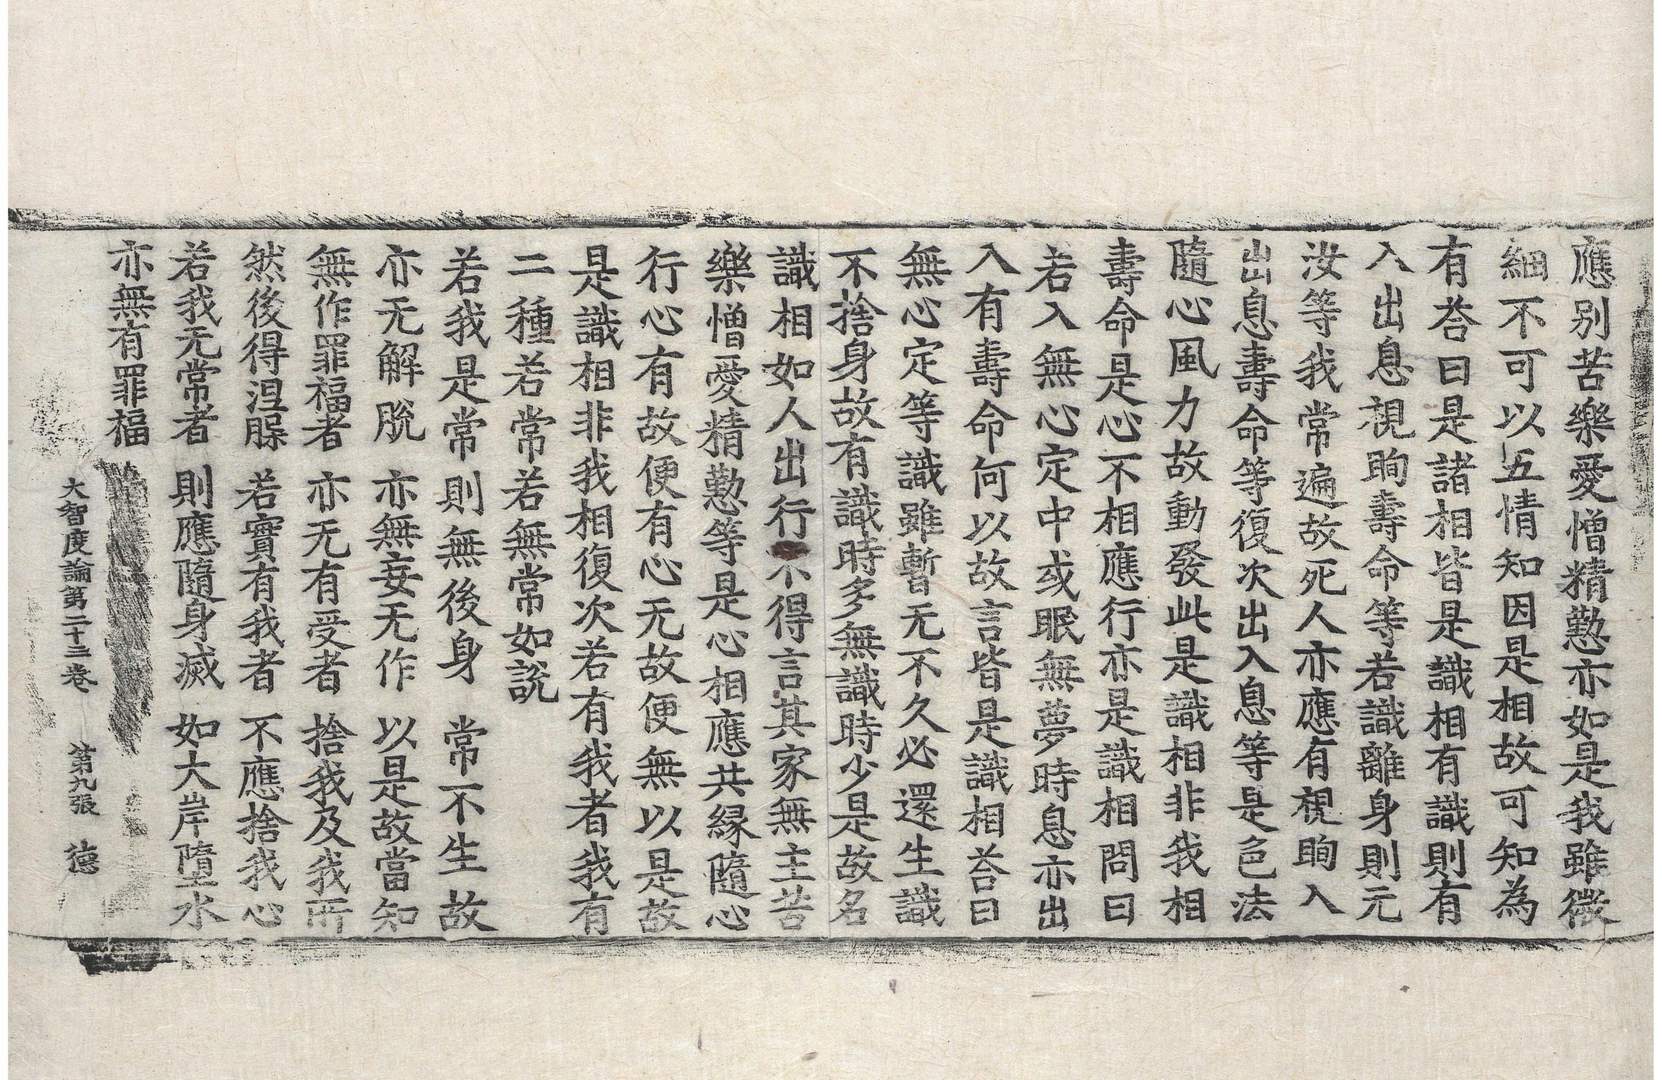 應別苦樂愛憎精懃亦如是我雖微
細不可以五情知因是相故可知為
有荅曰是諸相皆是識相有識則有
入出息視眴壽命等若識離身則无
汝等我常遍故死人亦應有視眴入
出息壽命等復次出入息等是色法
隨心風力故動發此是識相非我相
壽命是心不相應行亦是識相問曰
若入無心定中或眠無夢時息亦出
入有壽命何以故言皆是識相荅曰
無心定等識雖暫无不久必還生識
不捨身故有識時多無識時少是故名
識相如人出行不得言其家無主苦
樂憎愛精懃等是心相應共緣隨心
行心有故便有心无故便無以是故
是識相非我相復次若有我者我有
二種若常若無常如說
若我是常 則無後身 常不生故
亦无解脫 亦無妄无作 以是故當知
無作罪福者 亦无有受者 捨我及我所
然後得涅槃 若實有我者 不應捨我心
若我无常者 則應隨身滅 如大岸墮水
亦無有罪福
大智度論第二十三卷 第九張 德